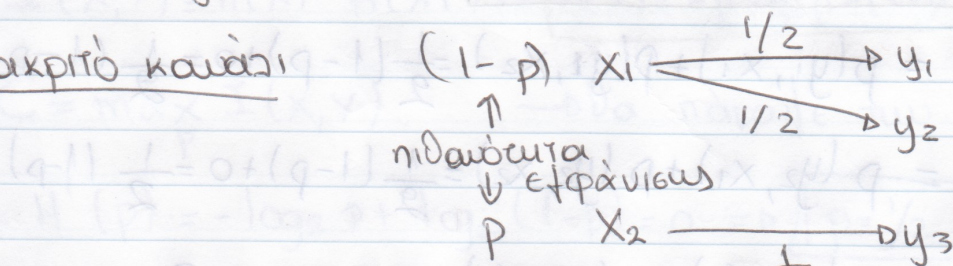 κανάλι (1-p) x₁ 1/2 y₁
1/2 y₂
πιθανότητα
εμφάνισης
p x₂ y₃